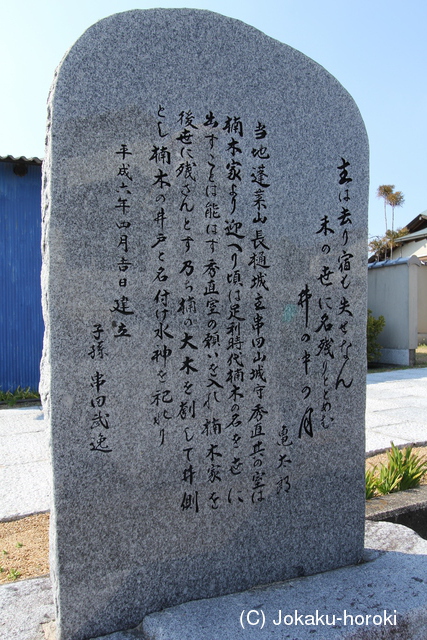 主は去り宿も失せなん
末の世に名残りとどめむ
井の中の月
亀太郎
当地蓬莱山長樋城主串田山城守秀直其の室は
楠木家より迎へり頃は足利時代楠木の名を世に
出すことは能はす秀直室の願いを入れ楠木家を
後世に残さんとす乃ち楠の大木を刳して井側
とし楠木の井戸と名付け水神を祀れり
平成六年四月吉日建立
子孫 串田武逸
(C) Jokaku-horoki